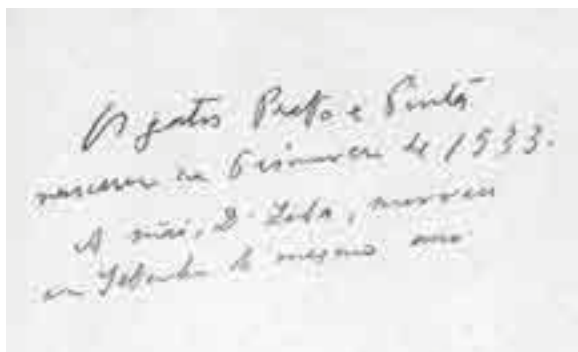 Os gatos Preto e Pintã
nasceram na Primavera de 1933.
A mãi, D. Zeba, morreu
em Setembro do mesmo ano.